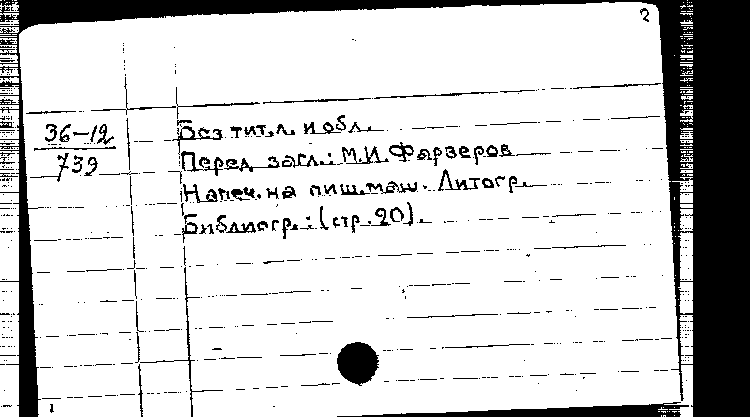 2
36-12
739
Без тит.л. и обл.
Перед загл.: М.И.Фарзеров
Напеч. на пиш.маш. Литогр.
Библиогр.: (стр. 20).